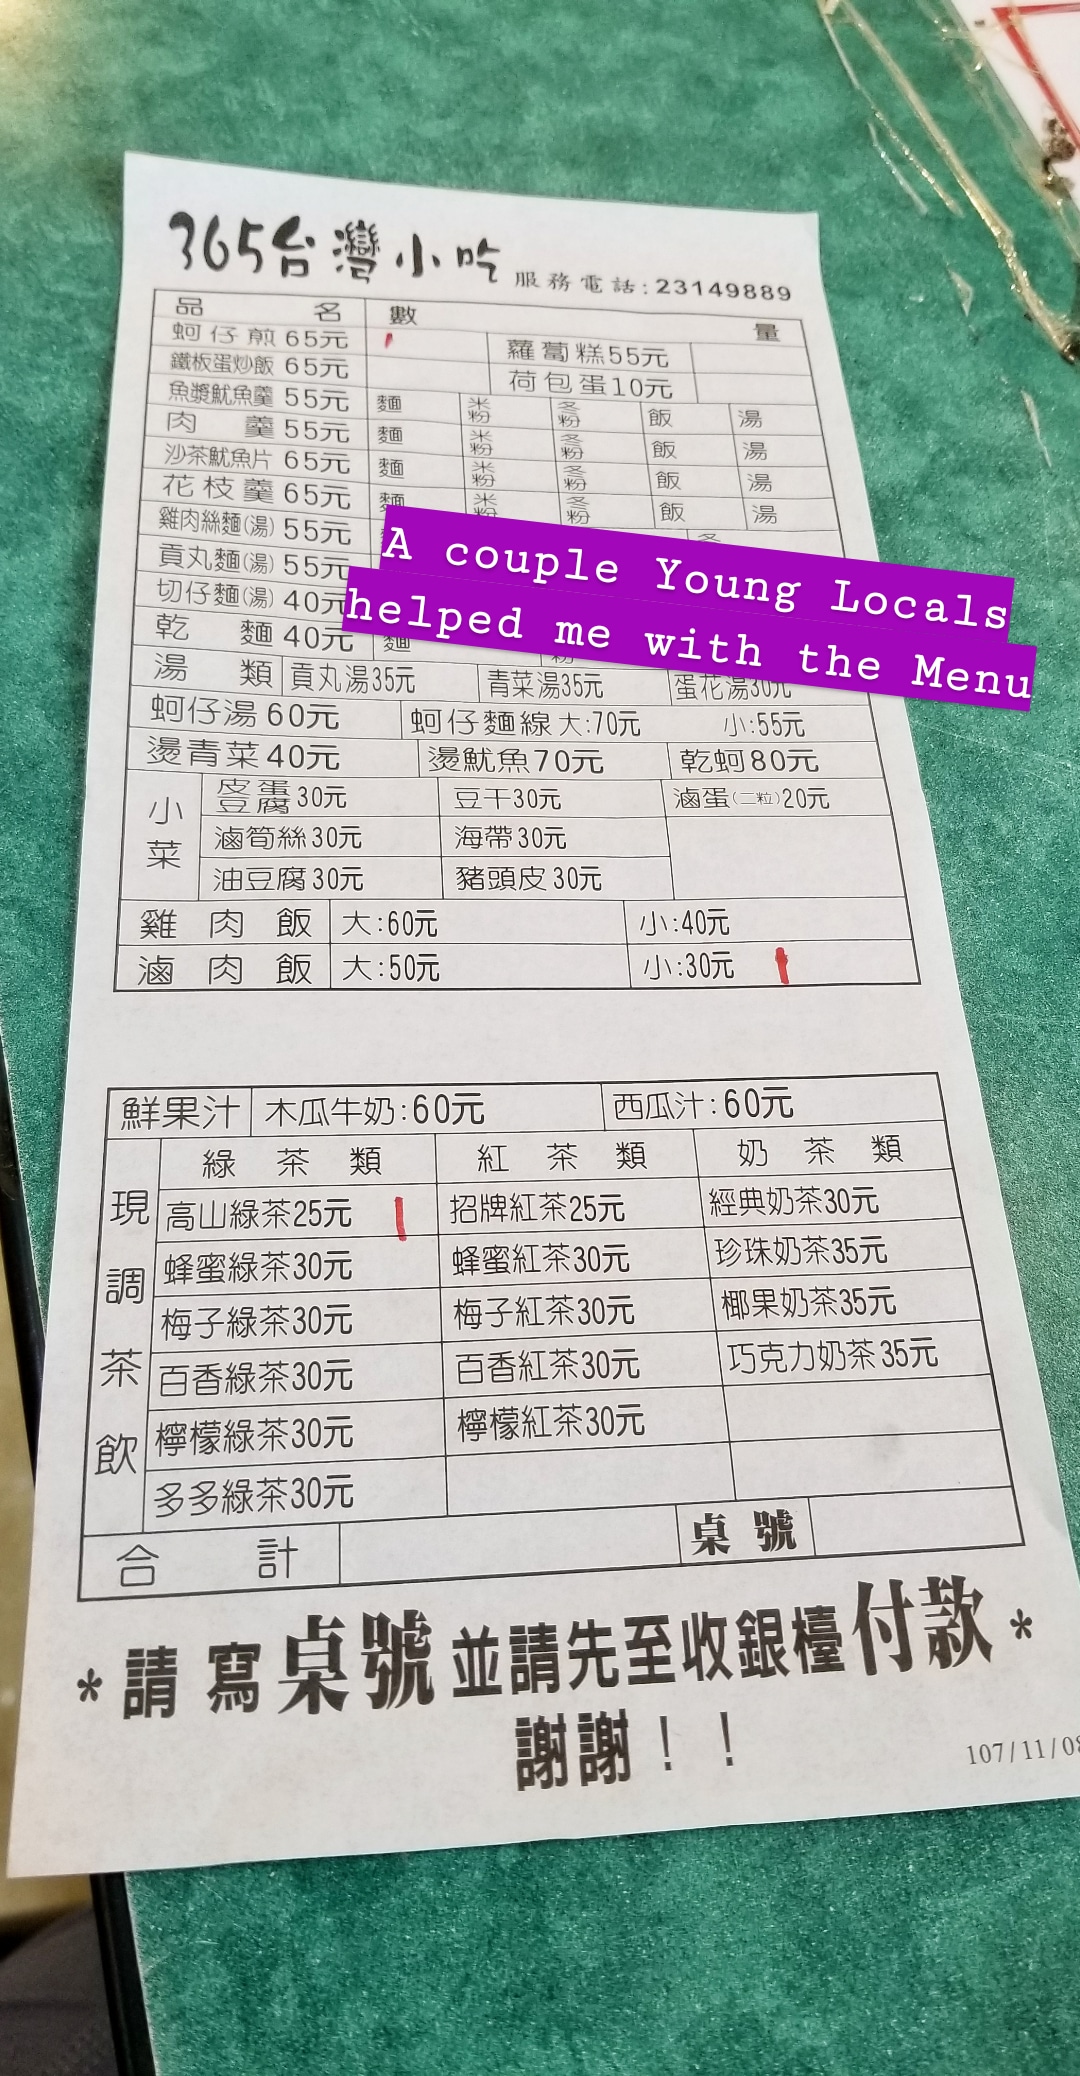 365台灣小吃 服務電話:23149889
品名 數量
蚵仔煎 65元 蘿蔔糕55元
鐵板蛋炒飯 65元 荷包蛋10元
魚漿魷魚羹 55元 麵 米粉 冬粉 飯 湯
肉羹 55元 麵 米粉 冬粉 飯 湯
沙茶魷魚片 65元 麵 米粉 冬粉 飯 湯
花枝羹 65元 麵 米粉 冬粉 飯 湯
雞肉絲麵(湯) 55元 冬
貢丸麵(湯) 55元
切仔麵(湯) 40元
乾麵 40元 麵 粉
A couple Young Locals
helped me with the Menu
湯類 貢丸湯35元 青菜湯35元 蛋花湯30元
蚵仔湯 60元 蚵仔麵線 大:70元 小:55元
燙青菜 40元 燙魷魚70元 乾蚵80元
小菜 皮蛋豆腐 30元 豆干30元 滷蛋(二粒)20元
滷筍絲 30元 海帶 30元
油豆腐 30元 豬頭皮 30元
雞肉飯 大:60元 小:40元
滷肉飯 大:50元 小:30元
鮮果汁 木瓜牛奶:60元 西瓜汁:60元
現調茶飲 綠茶類 紅茶類 奶茶類
高山綠茶25元 招牌紅茶25元 經典奶茶30元
蜂蜜綠茶30元 蜂蜜紅茶30元 珍珠奶茶35元
梅子綠茶30元 梅子紅茶30元 椰果奶茶35元
百香綠茶30元 百香紅茶30元 巧克力奶茶35元
檸檬綠茶30元 檸檬紅茶30元
多多綠茶30元
合計 桌號
*請寫桌號並請先至收銀檯付款*
謝謝!!
107/11/08